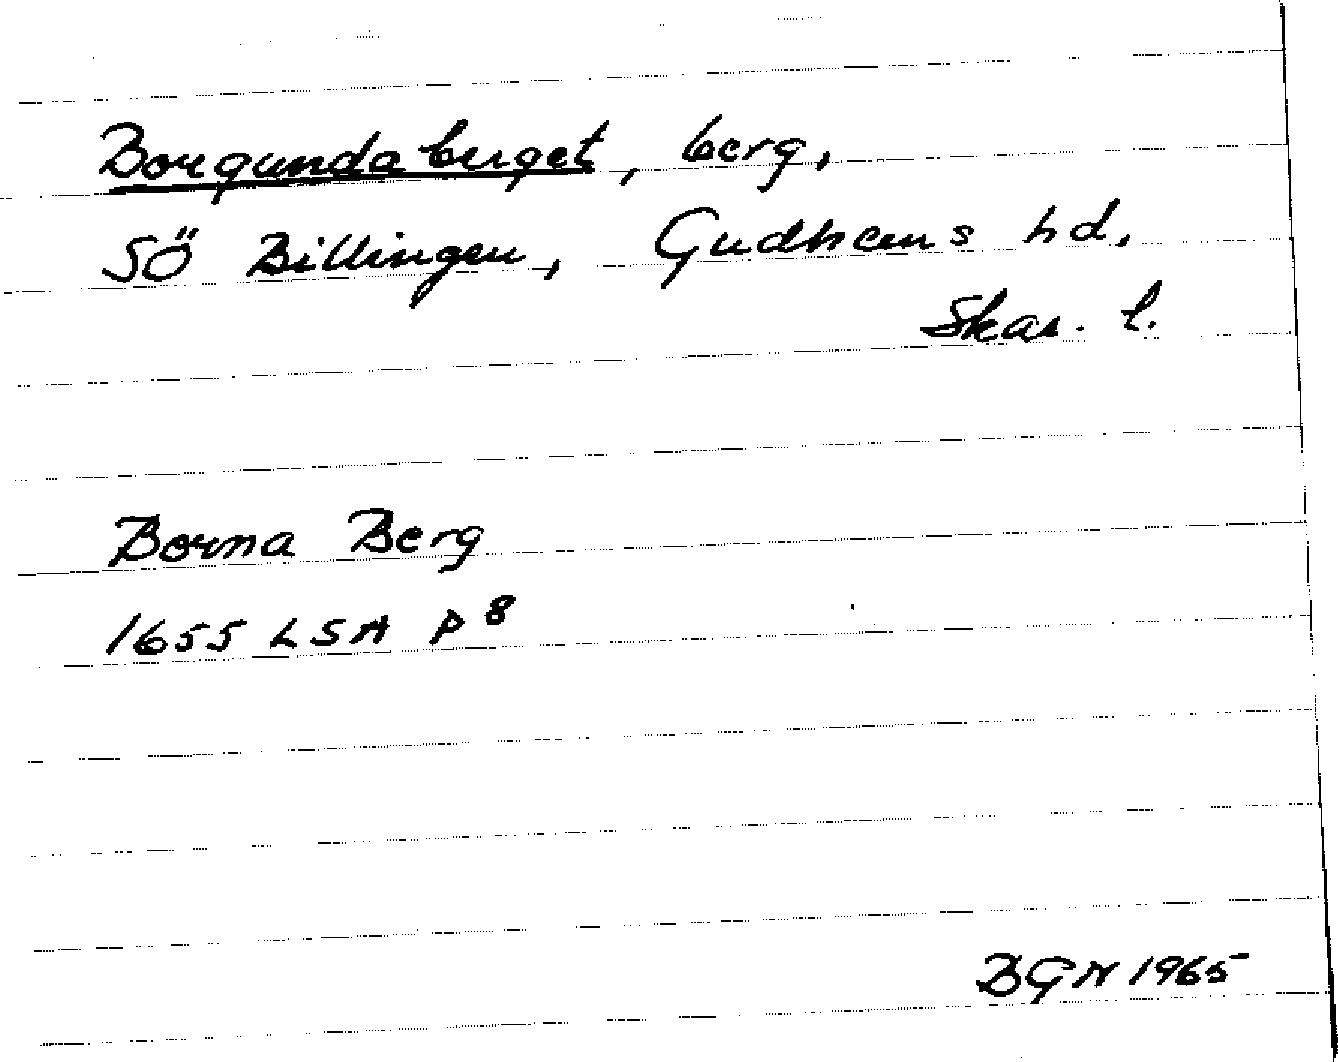 Borgundaberget, berg,
SÖ Billingen, Gudhems hd,
Skar. l.
Borna Berg
1655 LSA P 8
BGN 1965